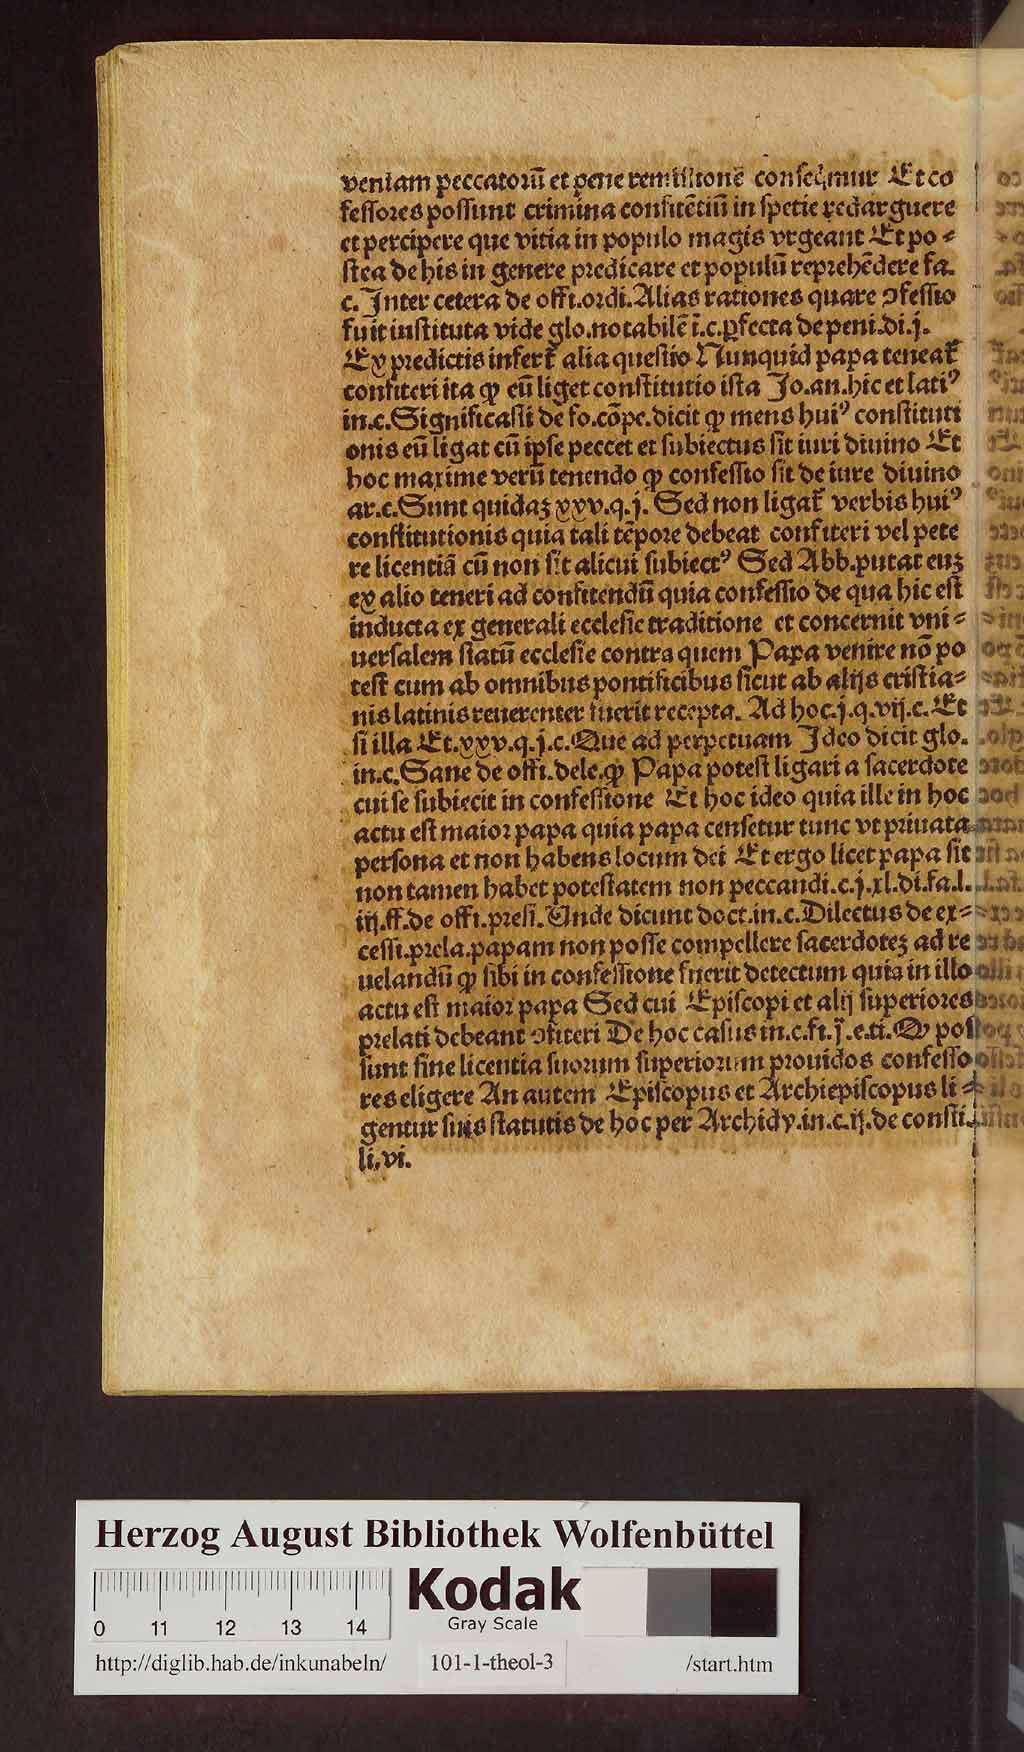 veniam peccatorū et pene remissionē conseq̄mur Et co
fessores possunt crimina confitētiū in spetie redarguere
et percipere que vitia in populo magis vrgeant Et po⸗
stea de his in genere predicare et populū reprehēdere fa.
c. Inter cetera de offi.ordi.Alias rationes quare ꝯfessio
fuit instituta vide glo.notabilē ī.c.ꝑfecta de peni.di.j.
Ex predictis infert᷑ alia questio Nunquid papa teneat᷑
confiteri ita ꝙ eū liget constitutio ista Jo.an.hic et latiꝰ
in.c.Significasti de fo.cōpe.dicit ꝙ mens huiꝰ constituti
onis eū ligat cū ipse peccet et subiectus sit iuri diuino Et
hoc maxime verū tenendo ꝙ confessio sit de iure diuino
ar.c.Sunt quidaꝫ xxv.q.j. Sed non ligat᷑ verbis huiꝰ
constitutionis quia tali tēpore debeat confiteri vel pete
re licentiā cū non sit alicui subiectꝰ Sed Abb.putat euꝫ
ex alio teneri ad confitendū quia confessio de qua hic est
inducta ex generali ecclesie traditione et concernit vni⸗
uersalem statū ecclesie contra quem Papa venire nō po
test cum ab omnibus pontificibus sicut ab alijs cristia⸗
nis latinis reuerenter fuerit recepta. Ad hoc.j.q.vij.c.Et
si illa Et.xxv.q.j.c.Que ad perpetuam Ideo dicit glo.
in.c.Sane de offi.dele.ꝙ Papa potest ligari a sacerdote
cui se subiecit in confessione Et hoc ideo quia ille in hoc
actu est maior papa quia papa censetur tunc vt priuata
persona et non habens locum dei Et ergo licet papa sit
non tamen habet potestatem non peccandi.c.j.xl.di.fa.l.
iij.ff.de offi.presi.Unde dicunt doct.in.c.Dilectus de ex⸗
cessi.prela.papam non posse compellere sacerdoteꝫ ad re
uelandū ꝙ sibi in confessione fuerit detectum quia in illo
actu est maior papa Sed cui Episcopi et alij superiores
prelati debeant ꝯfiteri De hoc casus in.c.fi.j̄.e.ti.Q pos
sunt sine licentia suorum superiorum prouidos confesso
res eligere An autem Episcopus et Archiepiscopus li⸗
gentur suis statutis de hoc per Archidy.in.c.ij.de consti.
li.vi.
Herzog August Bibliothek Wolfenbüttel
Kodak
Gray Scale
0 11 12 13 14
http://diglib.hab.de/inkunabeln/ 101-1-theol-3 /start.htm